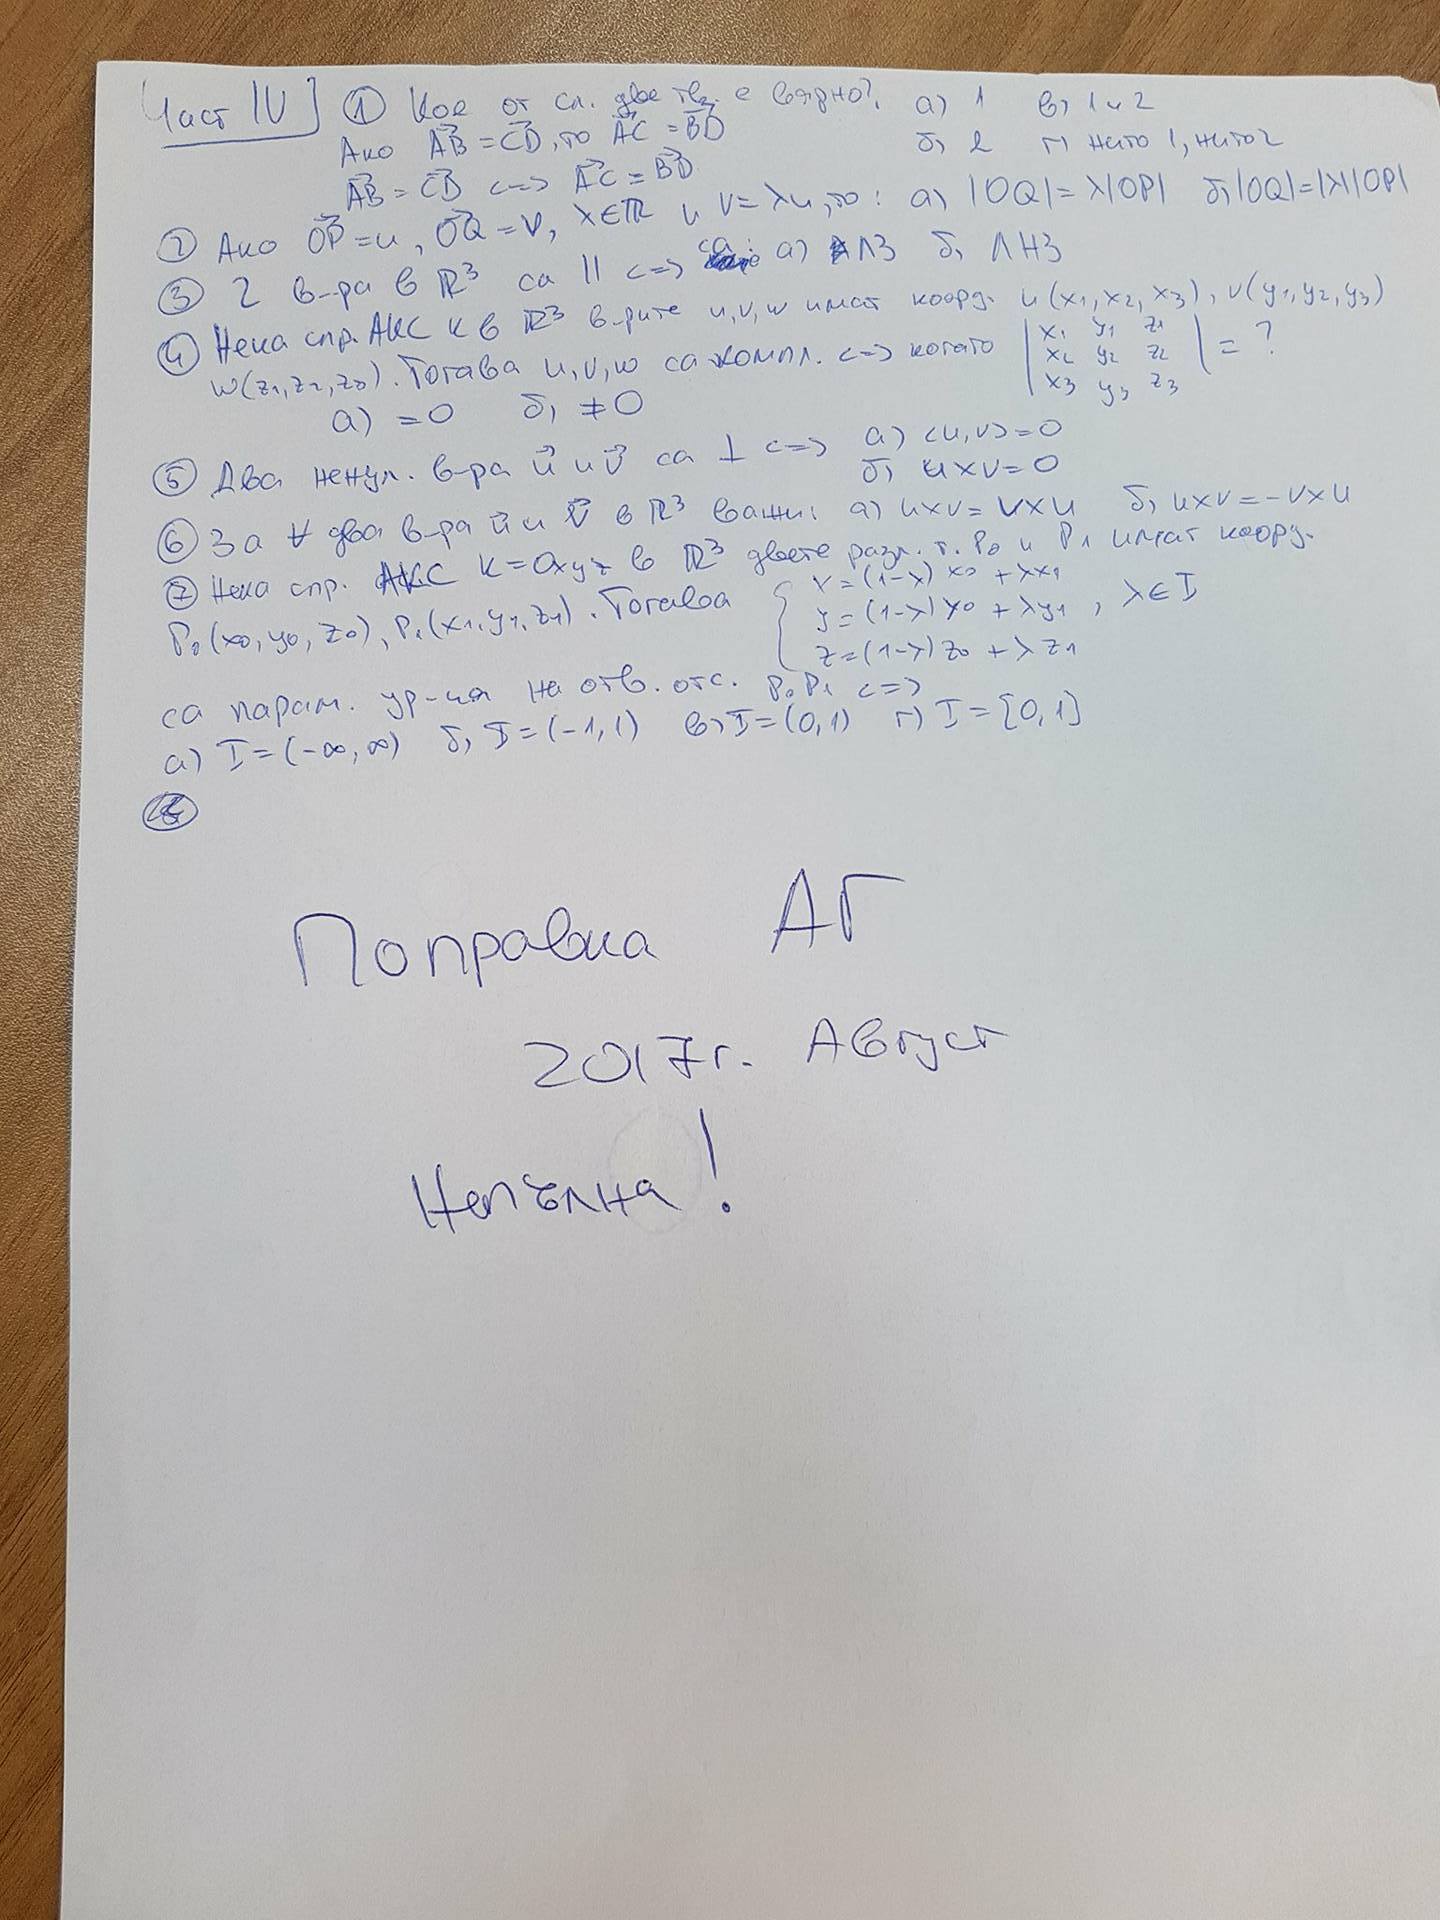 Част IV] ① Кое от сл. две тв. е вярно? а) 1 в) 1 и 2
Ако AB⃗ = CD⃗, то AC⃗ = BD⃗ б) 2 г) нито 1, нито 2
AB⃗ = CD⃗ <=> AC⃗ = BD⃗
② Ако OP⃗ = u, OQ⃗ = v, λ∈ℝ и v = λu, то: а) |OQ| = λ|OP| б) |OQ| = |λ||OP|
③ 2 в-ра в ℝ³ са || <=> са: а) ЛЗ б) ЛНЗ
④ Нека спр. АКС K в ℝ³ в-рите u, v, w имат коорд. u(x₁, x₂, x₃), v(y₁, y₂, y₃)
w(z₁, z₂, z₃). Тогава u, v, w са компл. <=> когато | x₁ y₁ z₁ ; x₂ y₂ z₂ ; x₃ y₃ z₃ | = ?
а) = 0 б) ≠ 0
⑤ Два ненул. в-ра u⃗ и v⃗ са ⊥ <=> а) <u, v> = 0
б) u×v = 0
⑥ За ∀ два в-ра u⃗ и v⃗ в ℝ³ важи: а) u×v = v×u б) u×v = -v×u
⑦ Нека спр. АКС K = Oxyz в ℝ³ двете разл. т. P₀ и P₁ имат коорд.
P₀(x₀, y₀, z₀), P₁(x₁, y₁, z₁). Тогава { x = (1-λ)x₀ + λx₁
y = (1-λ)y₀ + λy₁, λ∈I
z = (1-λ)z₀ + λz₁
са парам. ур-ия на отв. отс. P₀P₁ <=>
а) I = (-∞, ∞) б) I = (-1, 1) в) I = (0, 1) г) I = [0, 1]
Поправка АГ
2017г. Август
Непълна!